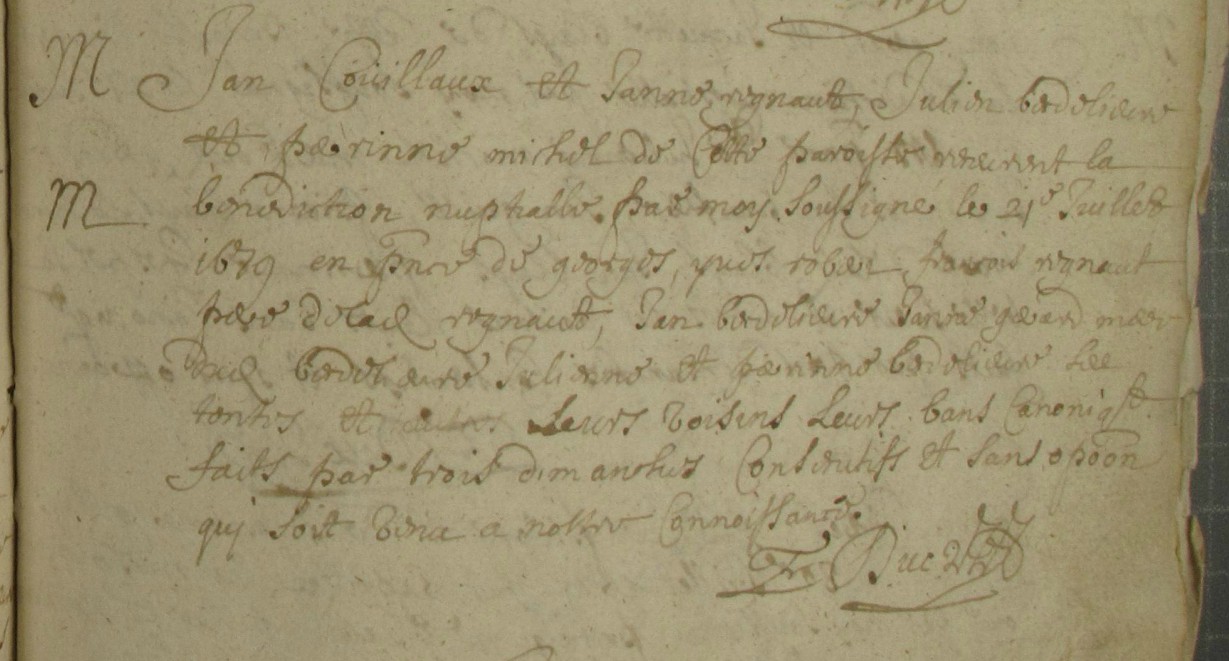 M Jan Coüillaux et Janne regnault, Julien bedelieure
et perrinne michel de Cette paroisse receurent la
M benediction nuptialle par moy soussigné le 21e Juillet
1679 en pnce de georges, yues rober francois regnaut
pere de lad regnault, Jan bedelieure Janne geard mere
dud bedelieure Julienne et perrinne bedelieure
tentes et autres Leurs voisins Leurs bans Canoniqt
faits par trois dimanches Consecutifs et sans opoon
qui soit venu a nottre Connoissance.
Fr. Duc